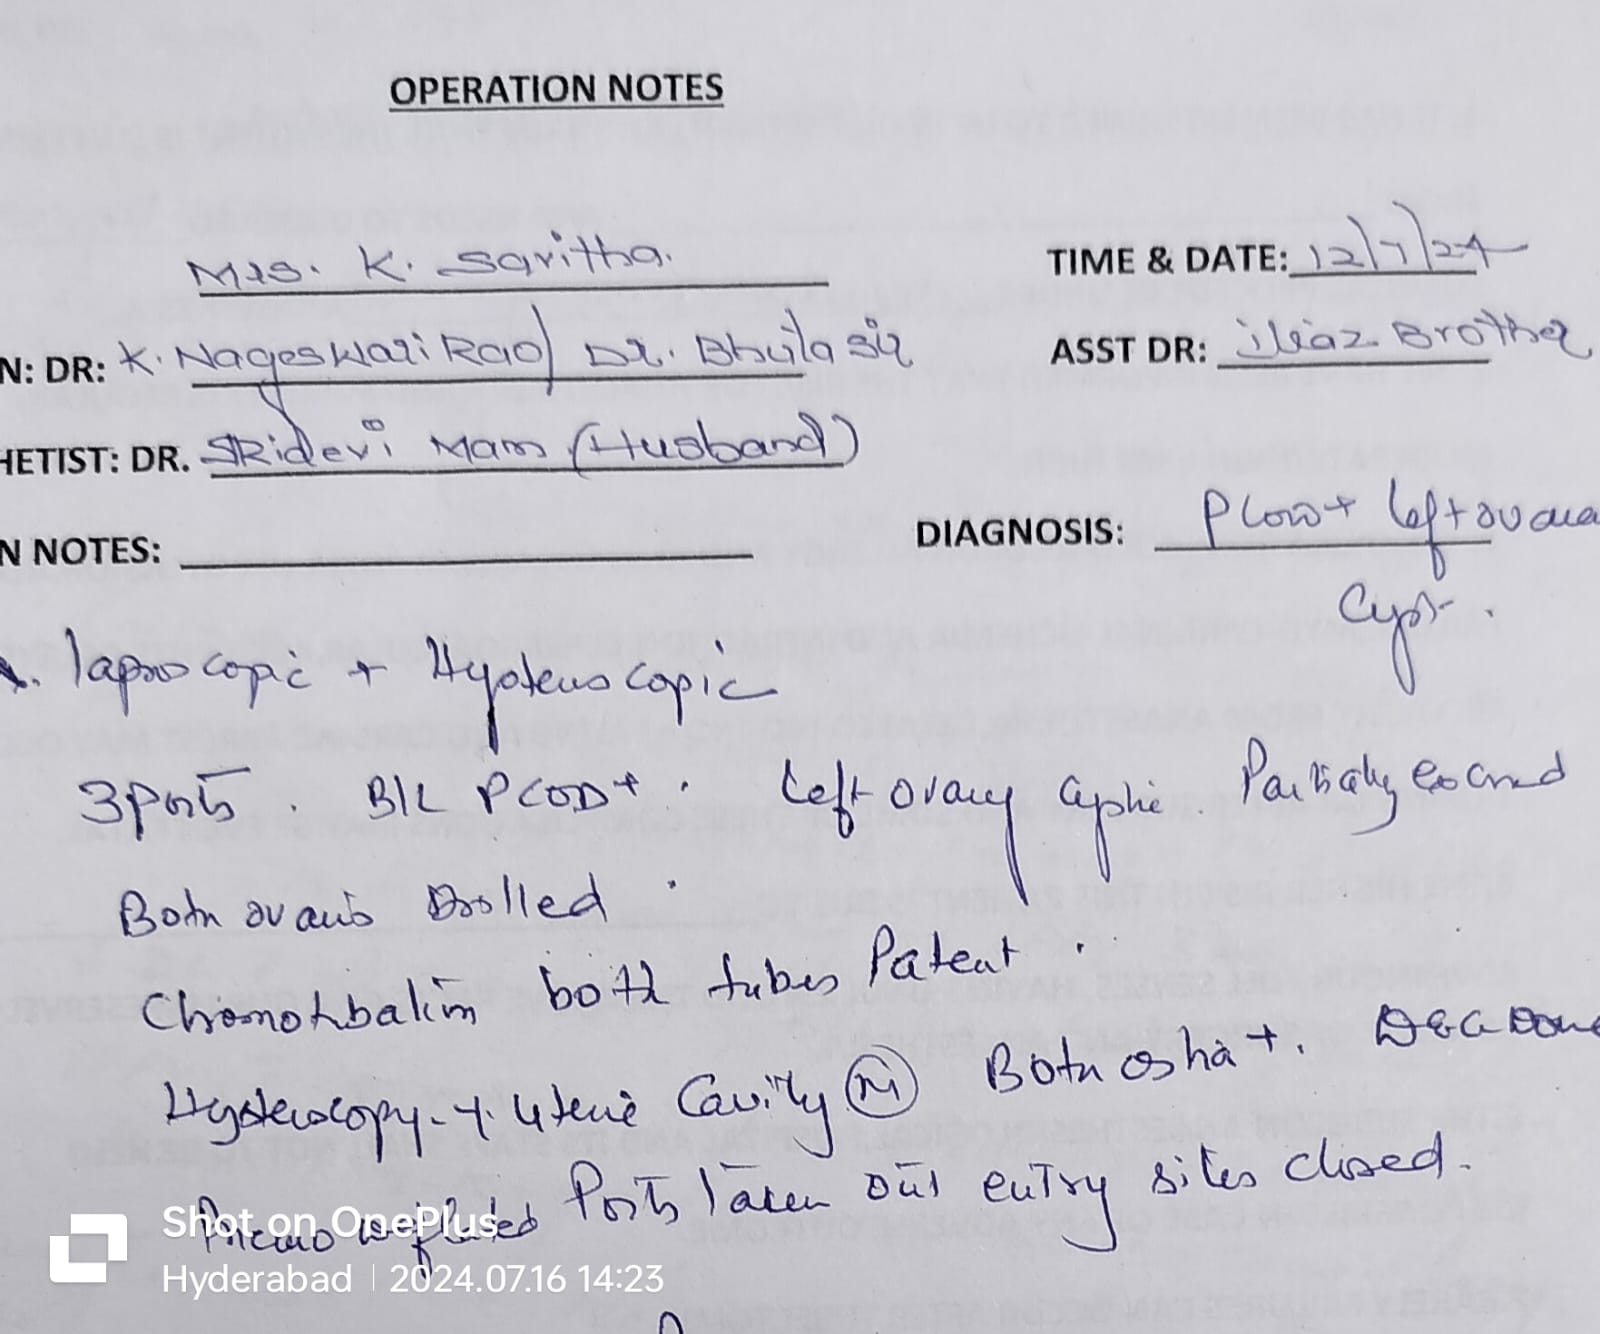 OPERATION NOTES
Mrs. K. Saritha.
TIME & DATE: 12/7/24
N: DR: K. Nageswari Rao / Dr. Bhula Sir
ASST DR: iliaz Brother
HETIST: DR. SRidevi Mam (Husband)
N NOTES:
DIAGNOSIS: PCOD + left ovaria
Cyst.
laproscopic + Hysteroscopic
3 Ports. B/L PCOD+. Left ovary Cystic. Partially
Both ovaries Drilled.
both tubes Patent.
Hysteroscopy - Uterine Cavity (N) Both ostia +. D&C Done
Ports Taken out entry sites closed.
Shot on OnePlus
Hyderabad | 2024.07.16 14:23